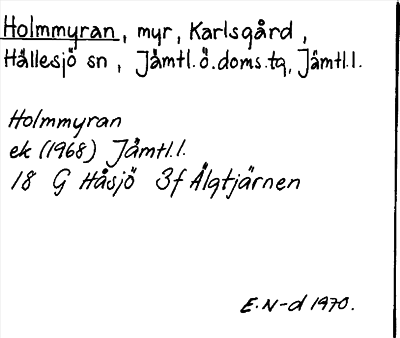 Holmmyran, myr, Karlsgård,
Hällesjö sn, Jämtl.ö.doms.tg, Jämtl.l.
Holmmyran
ek (1968) Jämtl.l.
18 G Håsjö 3f Älgtjärnen
E.N-d 1970.